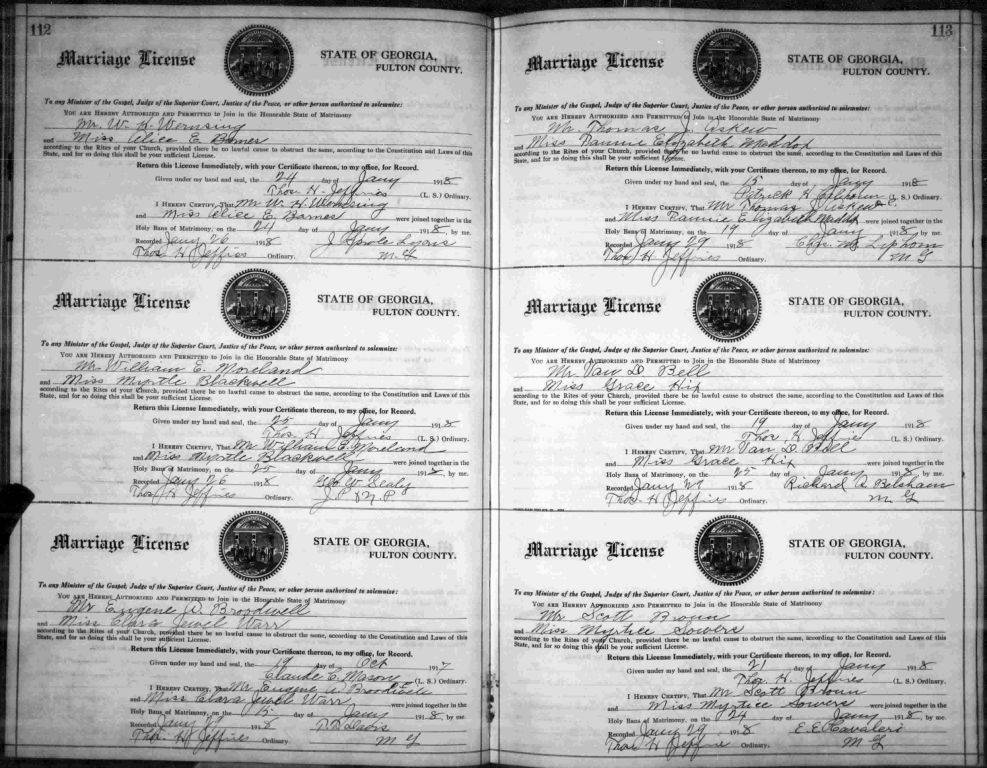 112
Marriage License
STATE OF GEORGIA,
FULTON COUNTY.
To any Minister of the Gospel, Judge of the Superior Court, Justice of the Peace, or other person authorized to solemnize:
YOU ARE HEREBY AUTHORIZED AND PERMITTED to Join in the Honorable State of Matrimony
Mr. W. H. Wernsing
and Miss Alice E. Barnes
according to the Rites of your Church, provided there be no lawful cause to obstruct the same, according to the Constitution and Laws of this
State, and for so doing this shall be your sufficient License.
Return this License Immediately, with your Certificate thereon, to my office, for Record.
Given under my hand and seal, the 24 day of Jany 1918
Thos. H. Jeffries (L. S.) Ordinary.
I HEREBY CERTIFY, That Mr W. H. Wernsing
and Miss Alice E. Barnes were joined together in the
Holy Bans of Matrimony, on the 24 day of Jany 1918, by me.
Recorded Jany 26 1918 J. Lyons
Thos. H Jeffries Ordinary. M. G
Marriage License
STATE OF GEORGIA,
FULTON COUNTY.
To any Minister of the Gospel, Judge of the Superior Court, Justice of the Peace, or other person authorized to solemnize:
YOU ARE HEREBY AUTHORIZED AND PERMITTED to Join in the Honorable State of Matrimony
Mr William E. Moreland
and Miss Myrtle Blackwell
according to the Rites of your Church, provided there be no lawful cause to obstruct the same, according to the Constitution and Laws of this
State, and for so doing this shall be your sufficient License.
Return this License Immediately, with your Certificate thereon, to my office, for Record.
Given under my hand and seal, the 25 day of Jany 1918
Thos. H Jeffries (L. S.) Ordinary.
I HEREBY CERTIFY, That Mr William E. Moreland
and Miss Myrtle Blackwell were joined together in the
Holy Bans of Matrimony, on the 25 day of Jany 1918, by me.
Recorded Jany 26 1918 Geo W. Sealy
Thos H Jeffries Ordinary. J.P & N.P
Marriage License
STATE OF GEORGIA,
FULTON COUNTY.
To any Minister of the Gospel, Judge of the Superior Court, Justice of the Peace, or other person authorized to solemnize:
YOU ARE HEREBY AUTHORIZED AND PERMITTED to Join in the Honorable State of Matrimony
Mr Eugene W. Broodwell
and Miss Clara Jewel Warr
according to the Rites of your Church, provided there be no lawful cause to obstruct the same, according to the Constitution and Laws of this
State, and for so doing this shall be your sufficient License.
Return this License Immediately, with your Certificate thereon, to my office, for Record.
Given under my hand and seal, the 19 day of Oct 1917
Claude C. Mason (L. S.) Ordinary.
I HEREBY CERTIFY, That Mr Eugene W Broodwell
and Miss Clara Jewel Warr were joined together in the
Holy Bans of Matrimony, on the day of Jany 1918, by me.
Recorded Jany 29 1918 Davis
Thos. H Jeffries Ordinary. M G
113
Marriage License
STATE OF GEORGIA,
FULTON COUNTY.
To any Minister of the Gospel, Judge of the Superior Court, Justice of the Peace, or other person authorized to solemnize:
YOU ARE HEREBY AUTHORIZED AND PERMITTED to Join in the Honorable State of Matrimony
Mr Thomas J. Askew
and Miss Fannie Elizabeth Maddox
according to the Rites of your Church, provided there be no lawful cause to obstruct the same, according to the Constitution and Laws of this
State, and for so doing this shall be your sufficient License.
Return this License Immediately, with your Certificate thereon, to my office, for Record.
Given under my hand and seal, the 15 day of Jany 1918
Patrick H Calhoun (L. S.) Ordinary.
I HEREBY CERTIFY, That Mr Thomas J Askew
and Miss Fannie Elizabeth Maddox were joined together in the
Holy Bans of Matrimony, on the 19 day of Jany 1918, by me.
Recorded Jany 29 1918 Chas. M. Lipham
Thos. H Jeffries Ordinary. M G
Marriage License
STATE OF GEORGIA,
FULTON COUNTY.
To any Minister of the Gospel, Judge of the Superior Court, Justice of the Peace, or other person authorized to solemnize:
YOU ARE HEREBY AUTHORIZED AND PERMITTED to Join in the Honorable State of Matrimony
Mr. Van D. Bell
and Miss Grace Hix
according to the Rites of your Church, provided there be no lawful cause to obstruct the same, according to the Constitution and Laws of this
State, and for so doing this shall be your sufficient License.
Return this License Immediately, with your Certificate thereon, to my office, for Record.
Given under my hand and seal, the 19 day of Jany 1918
Thos. H. Jeffries (L. S.) Ordinary.
I HEREBY CERTIFY, That Mr Van D. Bell
and Miss Grace Hix were joined together in the
Holy Bans of Matrimony, on the 25 day of Jany 1918, by me.
Recorded Jany 29 1918 Richard A Belsham
Thos. H Jeffries Ordinary. M G
Marriage License
STATE OF GEORGIA,
FULTON COUNTY.
To any Minister of the Gospel, Judge of the Superior Court, Justice of the Peace, or other person authorized to solemnize:
YOU ARE HEREBY AUTHORIZED AND PERMITTED to Join in the Honorable State of Matrimony
Mr Scott Broun
and Miss Myrtice Sowers
according to the Rites of your Church, provided there be no lawful cause to obstruct the same, according to the Constitution and Laws of this
State, and for so doing this shall be your sufficient License.
Return this License Immediately, with your Certificate thereon, to my office, for Record.
Given under my hand and seal, the 21 day of Jany 1918
Thos. H. Jeffries (L. S.) Ordinary.
I HEREBY CERTIFY, That Mr Scott Broun
and Miss Myrtice Sowers were joined together in the
Holy Bans of Matrimony, on the 24 day of Jany 1918, by me.
Recorded Jany 29 1918 E. E. Cavaleri
Thos H Jeffries Ordinary. M G